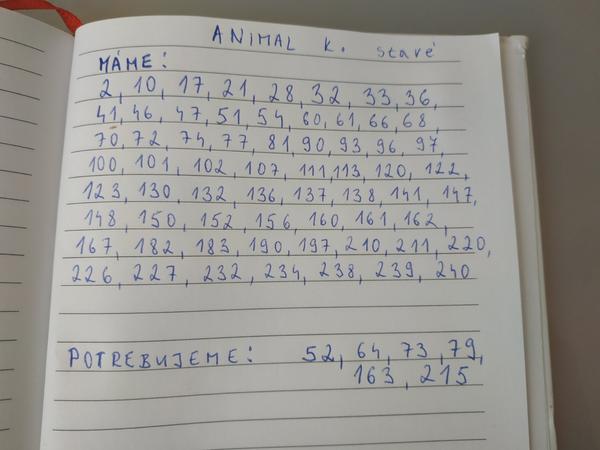 ANIMAL K. staré
MÁME:
2, 10, 17, 21, 28, 32, 33, 36,
41, 46, 47, 51, 54, 60, 61, 66, 68,
70, 72, 74, 77, 81, 90, 93, 96, 97,
100, 101, 102, 107, 111, 113, 120, 122,
123, 130, 132, 136, 137, 138, 141, 147,
148, 150, 152, 156, 160, 161, 162,
167, 182, 183, 190, 197, 210, 211, 220,
226, 227, 232, 234, 238, 239, 240
POTREBUJEME: 52, 64, 73, 79,
163, 215